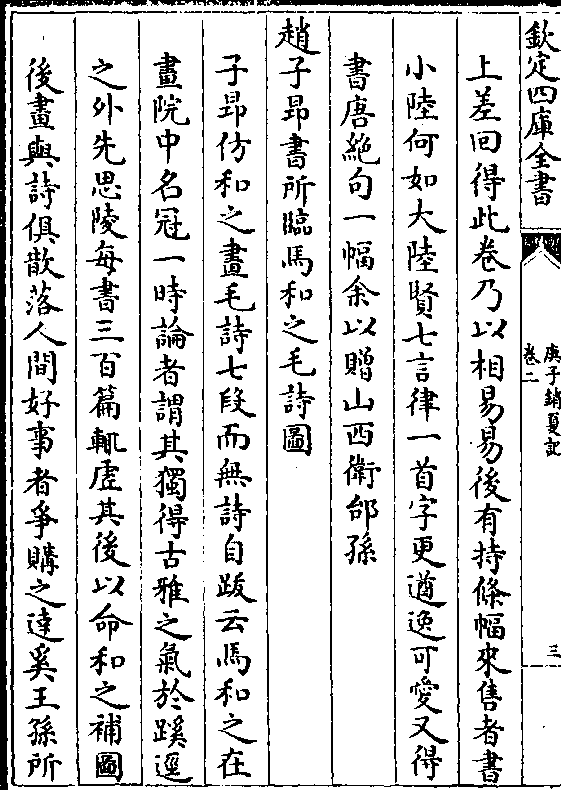 欽定四庫全書
庚子銷夏記
卷二
三
上差回得此卷乃以相易易後有持條幅來售者書
小陸何如大陸賢七言律一首字更遒逸可愛又得
書唐絕句一幅余以贈山西衛郃孫
趙子昂書所臨馬和之毛詩圖
子昂仿和之畫毛詩七段而無詩自跋云馬和之在
畫院中名冠一時論者謂其獨得古雅之氣於蹊逕
之外先思陵每書三百篇輒虛其後以命和之補圖
後畫與詩俱散落人間好事者爭購之逹奚王孫所